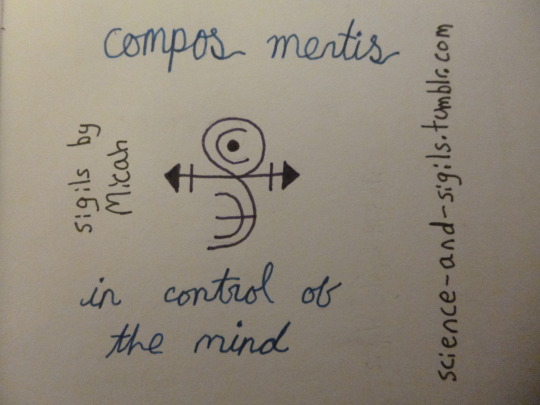 compos mentis
sigils by
Micah
in control of
the mind
science-and-sigils.tumblr.com